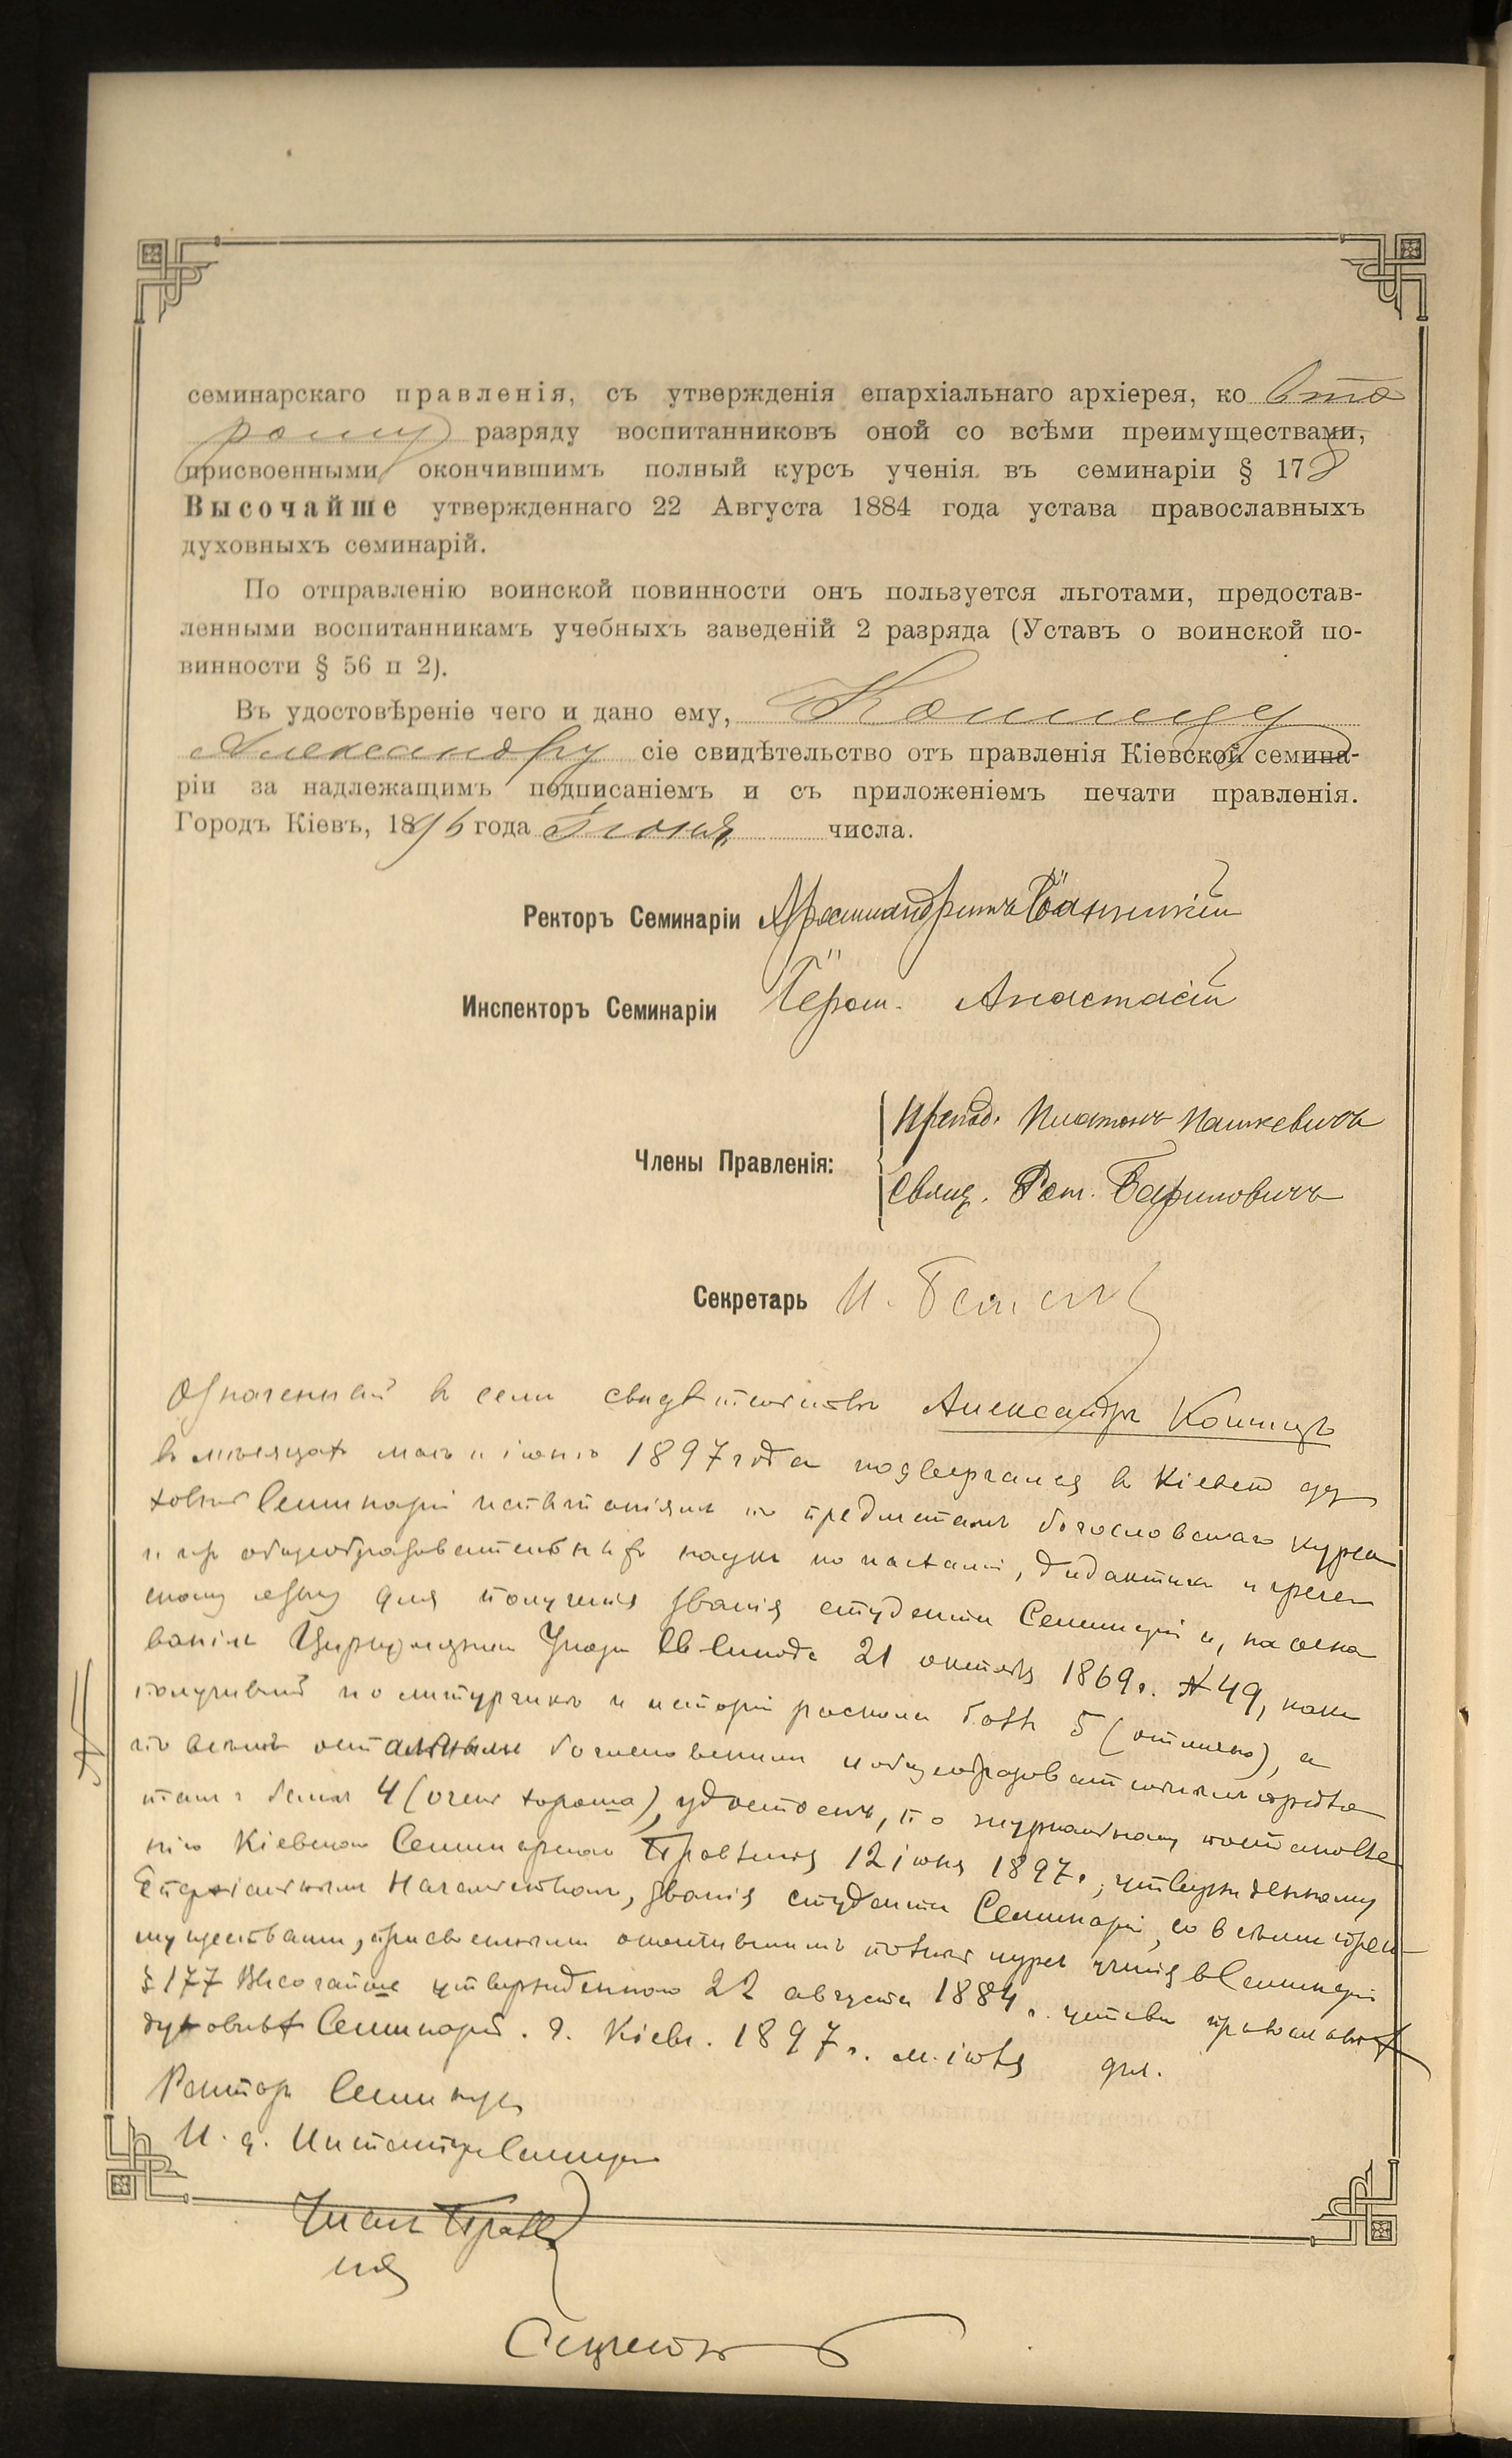 семинарскаго правленія, съ утвержденія епархіальнаго архіерея, ко вто
рому разряду воспитанниковъ оной со всѣми преимуществами,
присвоенными окончившимъ полный курсъ ученія въ семинаріи § 178
Высочайше утвержденнаго 22 Августа 1884 года устава православныхъ
духовныхъ семинарій.
По отправленію воинской повинности онъ пользуется льготами, предостав-
ленными воспитанникамъ учебныхъ заведеній 2 разряда (Уставъ о воинской по-
винности § 56 п 2).
Въ удостовѣреніе чего и дано ему, Кошицу
Александру сіе свидѣтельство отъ правленія Кіевской семина-
ріи за надлежащимъ подписаніемъ и съ приложеніемъ печати правленія.
Городъ Кіевъ, 1896 года Іюня числа.
Ректоръ Семинаріи Архимандритъ
Инспекторъ Семинаріи Іером. Анастасій
Препод. Платонъ Пашкевичъ
Члены Правленія:
Свящ.
Секретарь И.
Означенный в семъ свидѣтельствѣ Александръ Кошицъ
в мѣсяцах маѣ и іюнѣ 1897 года подвергался в Кіевской ду
ховной Семинаріи испытаніямъ по предметамъ богословскаго курса
и из общеобразовательныхъ наукъ по пасхаліи, дидактикѣ и грече
скому языку для полученія званія студента Семинаріи и, на осно
ваніи Циркулярнаго Указа Св. Синода 21 октября 1869 г. № 49, какъ
получившій по литургикѣ и исторіи раскола баллъ 5 (отлично), а
по всѣмъ остальнымъ богословскимъ и общеобразовательнымъ предме
тамъ баллъ 4 (очень хорошо), удостоенъ, по журнальному постановле
нію Кіевскаго Семинарскаго Правленія 12 іюня 1897 г., утвержденному
Епархіальнымъ Начальствомъ, званія студента Семинаріи, со всѣми преи
муществами, присвоенными окончившимъ полный курсъ ученія в Семинаріи
§ 177 Высочайше утвержденнаго 22 августа 1884 г. устава православных
духовных Семинарій. г. Кіевъ. 1897 г. м. іюня дня.
Ректоръ Семинаріи
И. д. Инспектора Семинаріи
Члены Правле
нія
Секретарь